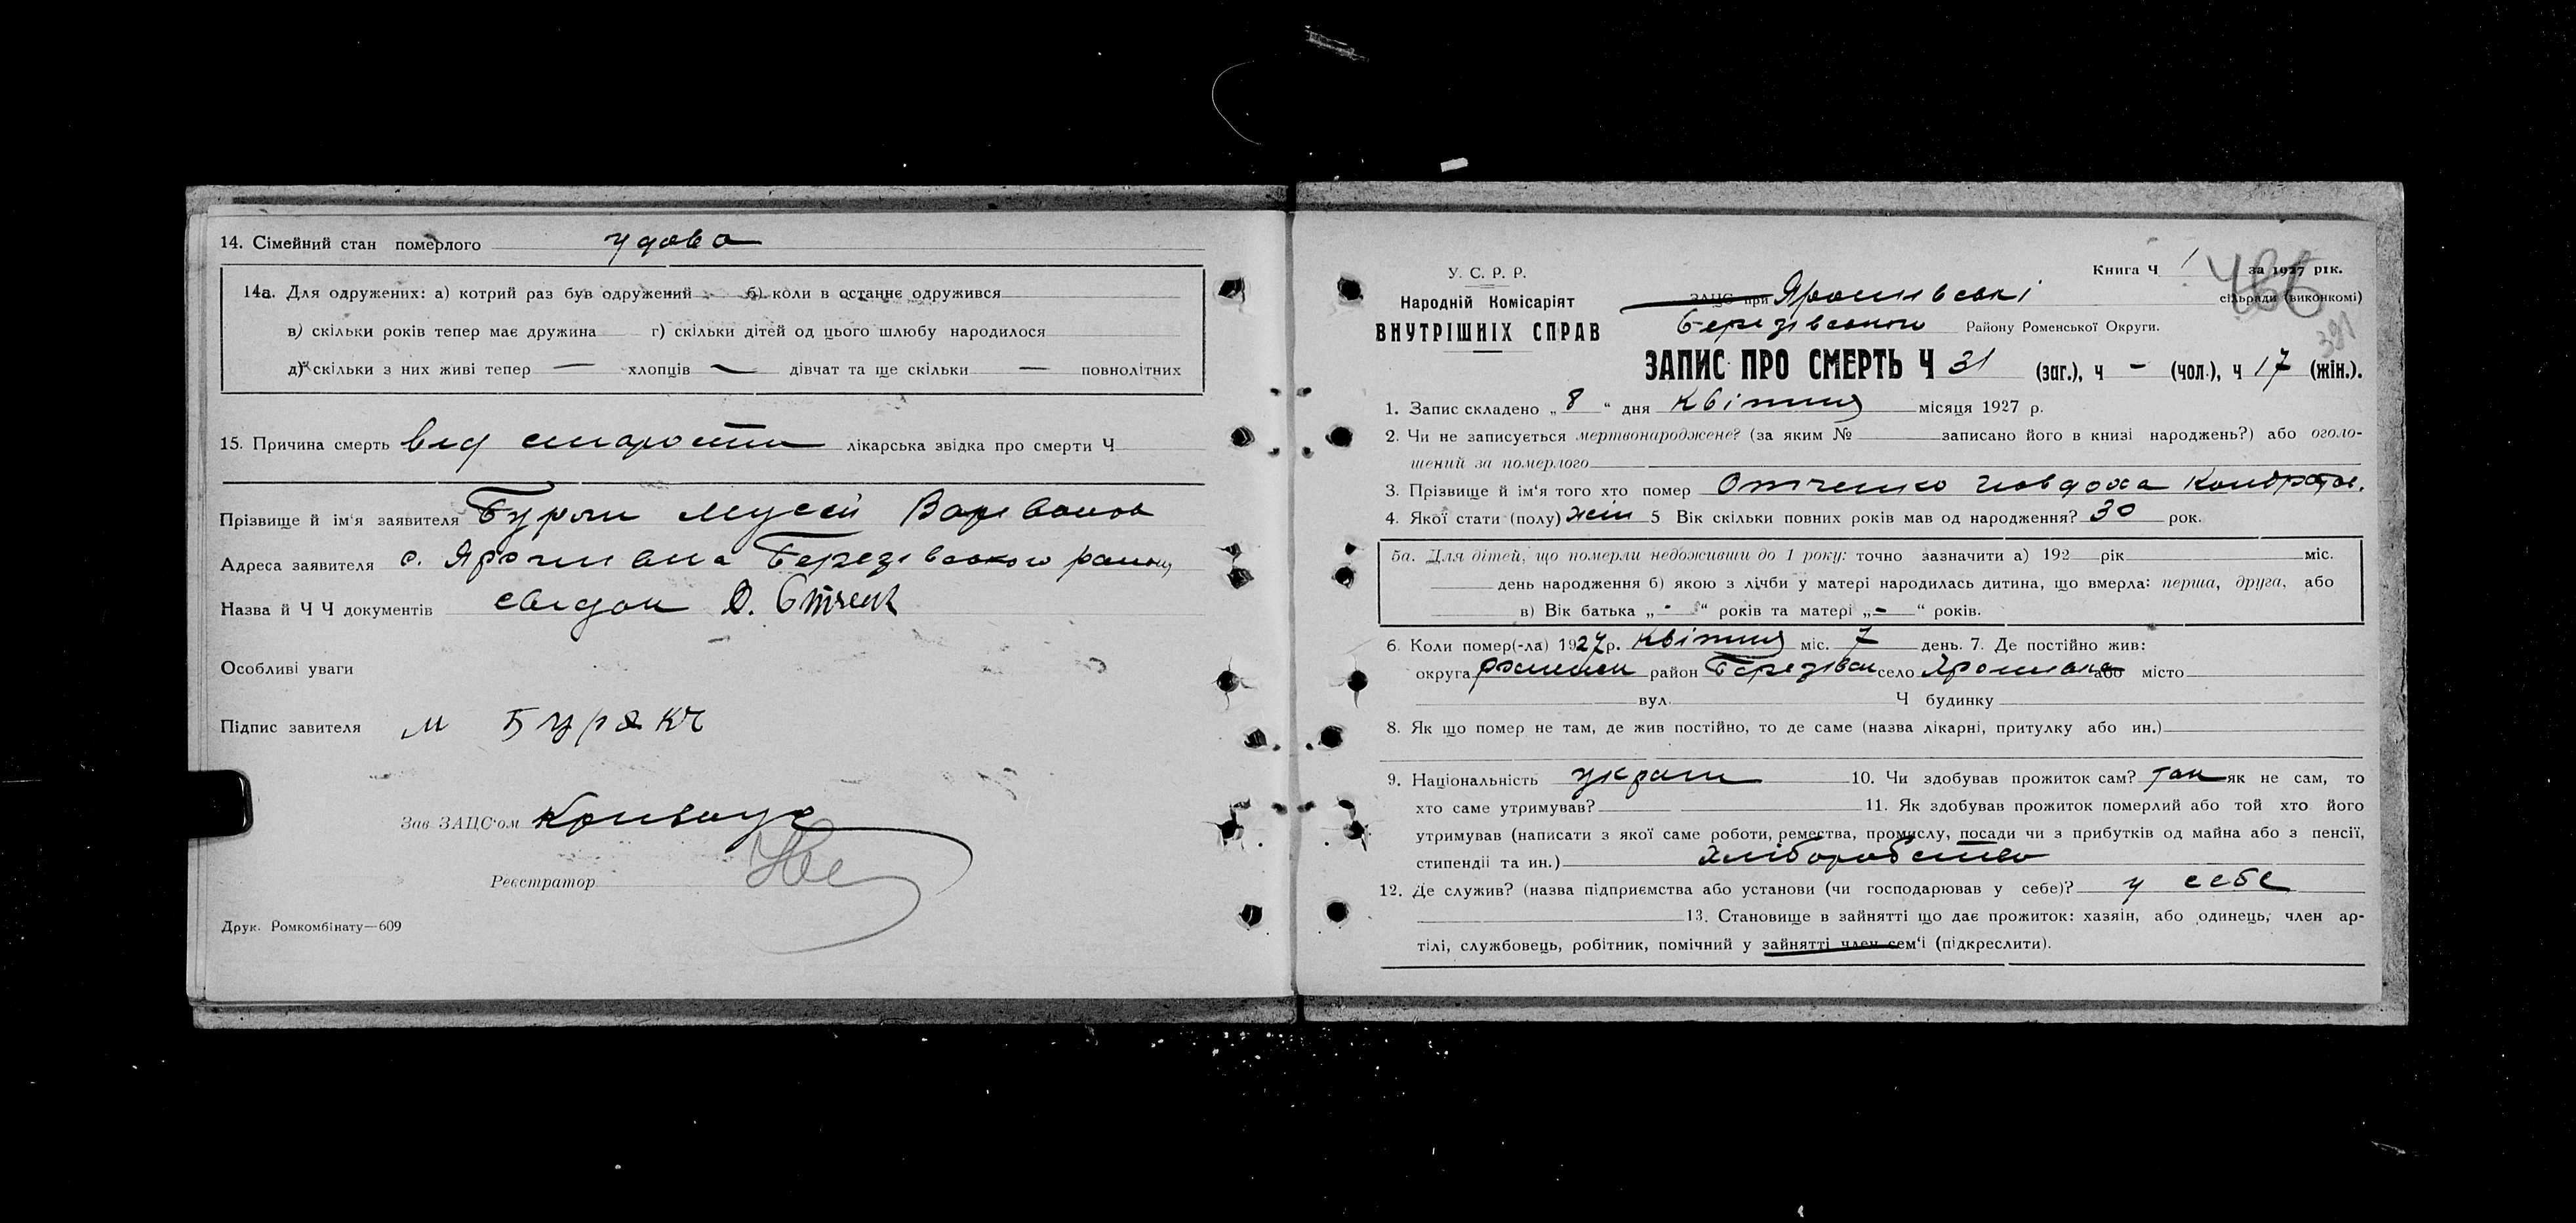 14. Сімейний стан померлого удова
14а. Для одружених: а) котрий раз був одружений б) коли в останнє одружився
в) скільки років тепер має дружина г) скільки дітей од цього шлюбу народилося
д) скільки з них живі тепер — хлопців — дівчат та ще скільки — повнолітних
15. Причина смерть від старости лікарська звідка про смерти Ч
Прізвище й ім'я заявителя Мусій
Адреса заявителя с. Ярошівка Березівського району
Назва й Ч Ч документів свідок
Особливі уваги
Підпис завителя М Буряк
Зав ЗАЦС'ом
Реєстратор
Друк. Ромкомбінату—609
Книга Ч 1 за 1927 рік.
466
391
У. С. Р. Р.
Народній Комісаріят
ВНУТРІШНІХ СПРАВ
ЗАЦС при Ярошівські сільради (виконкомі)
Березівського Району Роменської Округи.
ЗАПИС ПРО СМЕРТЬ Ч 31 (заг.), ч - (чол.), ч 17 (жін.).
1. Запис складено „ 8 “ дня Квітня місяця 1927 р.
2. Чи не записується мертвонароджене? (за яким № записано його в книзі народжень?) або оголо-
шений за померлого
3. Прізвище й ім'я того хто помер Отченко Явдоха Кондратов.
4. Якої стати (полу) жін 5 Вік скільки повних років мав од народження? 30 рок.
5а. Для дітей, що померли недоживши до 1 року: точно зазначити а) 192 рік міс.
день народження б) якою з лічби у матері народилась дитина, що вмерла: перша, друга, або
в) Вік батька „ - “ років та матері „ - “ років.
6. Коли помер(-ла) 1927 р. Квітня міс. 7 день. 7. Де постійно жив:
округа Роменськ район Березівськ село Ярошівка або місто
вул. Ч будинку
8. Як що помер не там, де жив постійно, то де саме (назва лікарні, притулку або ин.)
9. Національність україн 10. Чи здобував прожиток сам? так як не сам, то
хто саме утримував? 11. Як здобував прожиток померлий або той хто його
утримував (написати з якої саме роботи, ремества, промислу, посади чи з прибутків од майна або з пенсії,
стипендії та ин.) хліборобство
12. Де служив? (назва підприємства або установи (чи господарював у себе)? у себе
13. Становище в зайнятті що дає прожиток: хазяін, або одинець, член ар-
тілі, службовець, робітник, помічний у зайнятті член сем'ї (підкреслити).